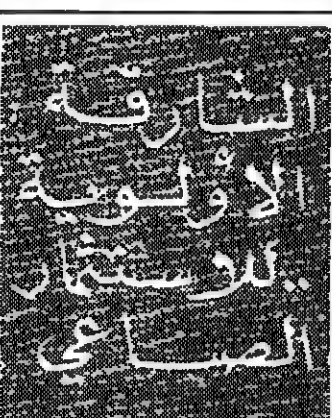 الشارقة
الأولوية
للاستثمار..
الصناعي